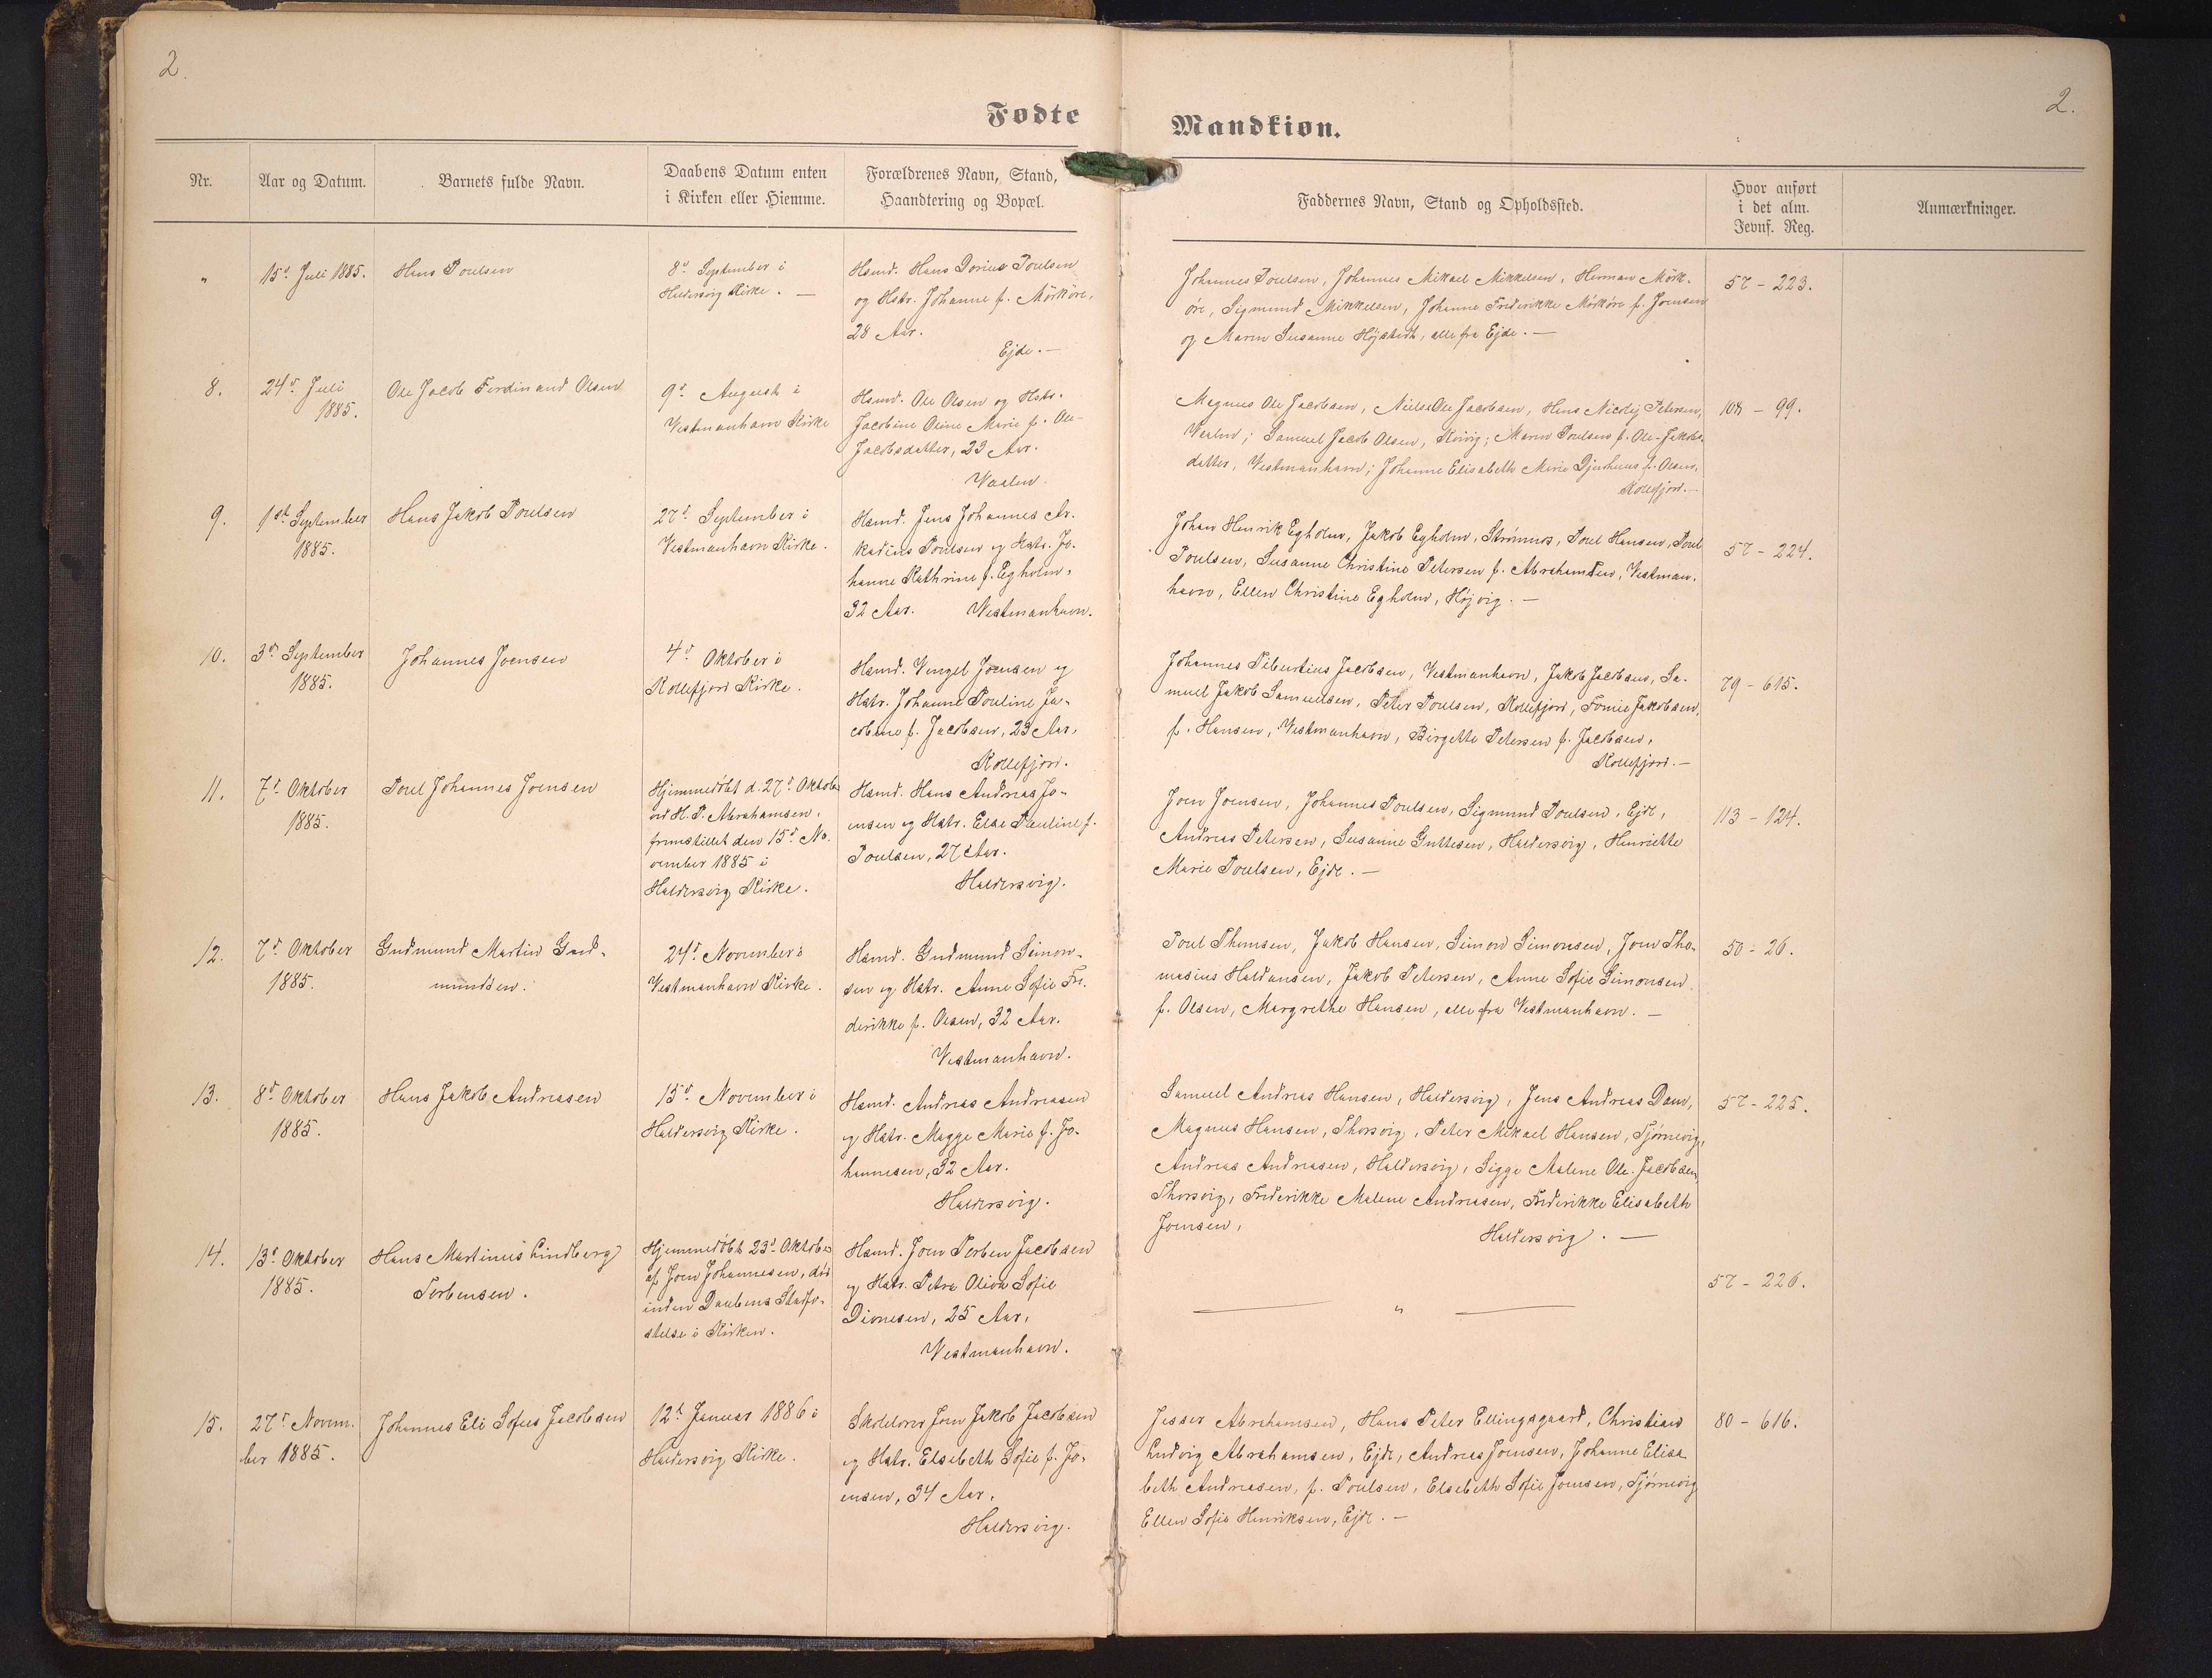 2.
2.
Fødte
Mandkiøn.
Nr.
Aar og Datum.
Barnets fulde Navn.
Daabens Datum enten
i Kirken eller Hiemme.
Forældrenes Navn, Stand,
Haandtering og Bopæl.
Faddernes Navn, Stand og Opholdssted.
Hvor anført
i det alm.
Jevnf. Reg.
Anmærkninger.
"
15d. Juli 1885.
Hans Poulsen
8d. September i
Haldersvig Kirke. —
Hsmd. Hans Dorius Poulsen
og Hstr. Johanne f. Mörköre,
28 Aar.
Ejde. —
Johannes Poulsen, Johannes Mikael Mikkelsen, Herman Mörk-
öre, Sigmund Mikkelsen, Johanne Frederikke Mörköre f. Joensen
og Maren Susanne Højstedt, alle fra Ejde. —
57 - 223.
8.
24d. Juli
1885.
Ole Jacob Ferdinand Olsen
9d. August i
Vestmanhavn Kirke
Hsmd. Ole Olsen og Hstr.
Jacobine Oline Marie f. Ole-
Jacobsdatter, 23 Aar.
Vaalen
Magnus Ole Jacobsen, Niels Ole Jacobsen, Hans Nicolej Petersen,
Vaalen; Samuel Jacob Olsen, Kvivig; Maren Poulsen f. Ole-Jakobs-
datter, Vestmanhavn; Johanne Elisabeth Marie Djurhuus f. Olsen,
Kollefjord. —
108 - 99.
9.
1st September
1885.
Hans Jakob Poulsen
27d. September i
Vestmanhavn Kirke.
Hsmd. Jens Johannes Ar-
kadius Poulsen og Hstr. Jo-
hanne Kathrine f. Egholm,
32 Aar. Vestmanhavn.
Johan Henrik Egholm, Jakob Egholm, Strömnæs, Poul Hansen, Poul
Poulsen, Susanne Christine Petersen f. Abrahamsen, Vestman-
havn, Ellen Christine Egholm, Højvig. —
57 - 224.
10.
3d. September
1885.
Johannes Joensen
4d. Oktober i
Kollefjord Kirke.
Hsmd. Vengel Joensen og
Hstr. Johanne Pouline Ja-
cobine f. Jacobsen, 23 Aar,
Kollefjord.
Johannes Tiburtius Jacobsen, Vestmanhavn, Jakob Jacobsen, Sa-
muel Jakob Samuelsen, Peter Poulsen, Kollefjord, Jakobsen,
f. Hansen, Vestmanhavn, Birgette Petersen f. Jacobsen,
Kollefjord. —
79 - 615.
11.
7d. Oktober
1885.
Poul Johannes Joensen
Hjemmedöbt d. 27d. Oktober
ved H. P. Abrahamsen,
fremstillet den 15d. No-
vember 1885 i
Haldersvig Kirke.
Hsmd. Hans Andreas Jo-
ensen og Hstr. Else Pauline f.
Poulsen, 27 Aar.
Haldersvig.
Joen Joensen, Johannes Poulsen, Sigmund Poulsen, Ejde,
Andreas Petersen, Susanne Guttesen, Haldersvig, Henriette
Marie Poulsen, Ejde. —
113 - 124.
12.
7d. Oktober
1885.
Gudmund Martin Gud-
mundsen.
24d. November i
Vestmanhavn Kirke.
Hsmd. Gudmund Simon-
sen og Hstr. Anne Sofie Fre-
derikke f. Olsen, 32 Aar.
Vestmanhavn.
Poul Thomsen, Jakob Hansen, Simon Simonsen, Joen Tho-
masius Haldansen, Jakob Petersen, Anne Sofie Simonsen
f. Olsen, Margrethe Hansen, alle fra Vestmanhavn. —
50 - 26.
13.
8d. Oktober
1885.
Hans Jakob Andreasen
15d. November i
Haldersvig Kirke.
Hsmd. Andreas Andreasen
og Hstr. Magge Marie f. Jo-
hannesen, 32 Aar.
Haldersvig.
Samuel Andreas Hansen, Haldersvig, Jens Andreas Dam,
Magnus Hansen, Thorsvig, Peter Mikael Hansen, Tjörnevig,
Andreas Andreasen, Haldersvig, Sigge Malene Ole-Jacobsen
Thorsvig, Frederikke Malene Andreasen, Frederikke Elisabeth
Joensen, Haldersvig. —
57 - 225.
14.
13d. Oktober
1885.
Hans Martinus Lindberg
Torbensen.
Hjemmedöbt 23d. Oktober
af Joen Johannesen, död
inden Daabens Stadfæ-
stelse i Kirken.
Hsmd. Joen Torben Jacobsen
og Hstr. Petra Olivia Sofie
Dionesen, 25 Aar,
Vestmanhavn.
— " —
57 - 226.
15.
27d. Novem-
ber 1885.
Johannes Eli Sofus Jacobsen
12d. Januar 1886 i
Haldersvig Kirke.
Skolelærer Joen Jakob Jacobsen
og Hstr. Elsebeth Sofie f. Jo-
ensen, 34 Aar,
Haldersvig.
Jesser Abrahamsen, Hans Peter Ellingsgaard, Christian
Ludvig Abrahamsen, Ejde, Andreas Joensen, Johanne Elisa-
beth Andreasen, f. Poulsen, Elsebeth Sofie Joensen, Tjörnevig
Ellen Sofie Henriksen, Ejde. —
80 - 616.